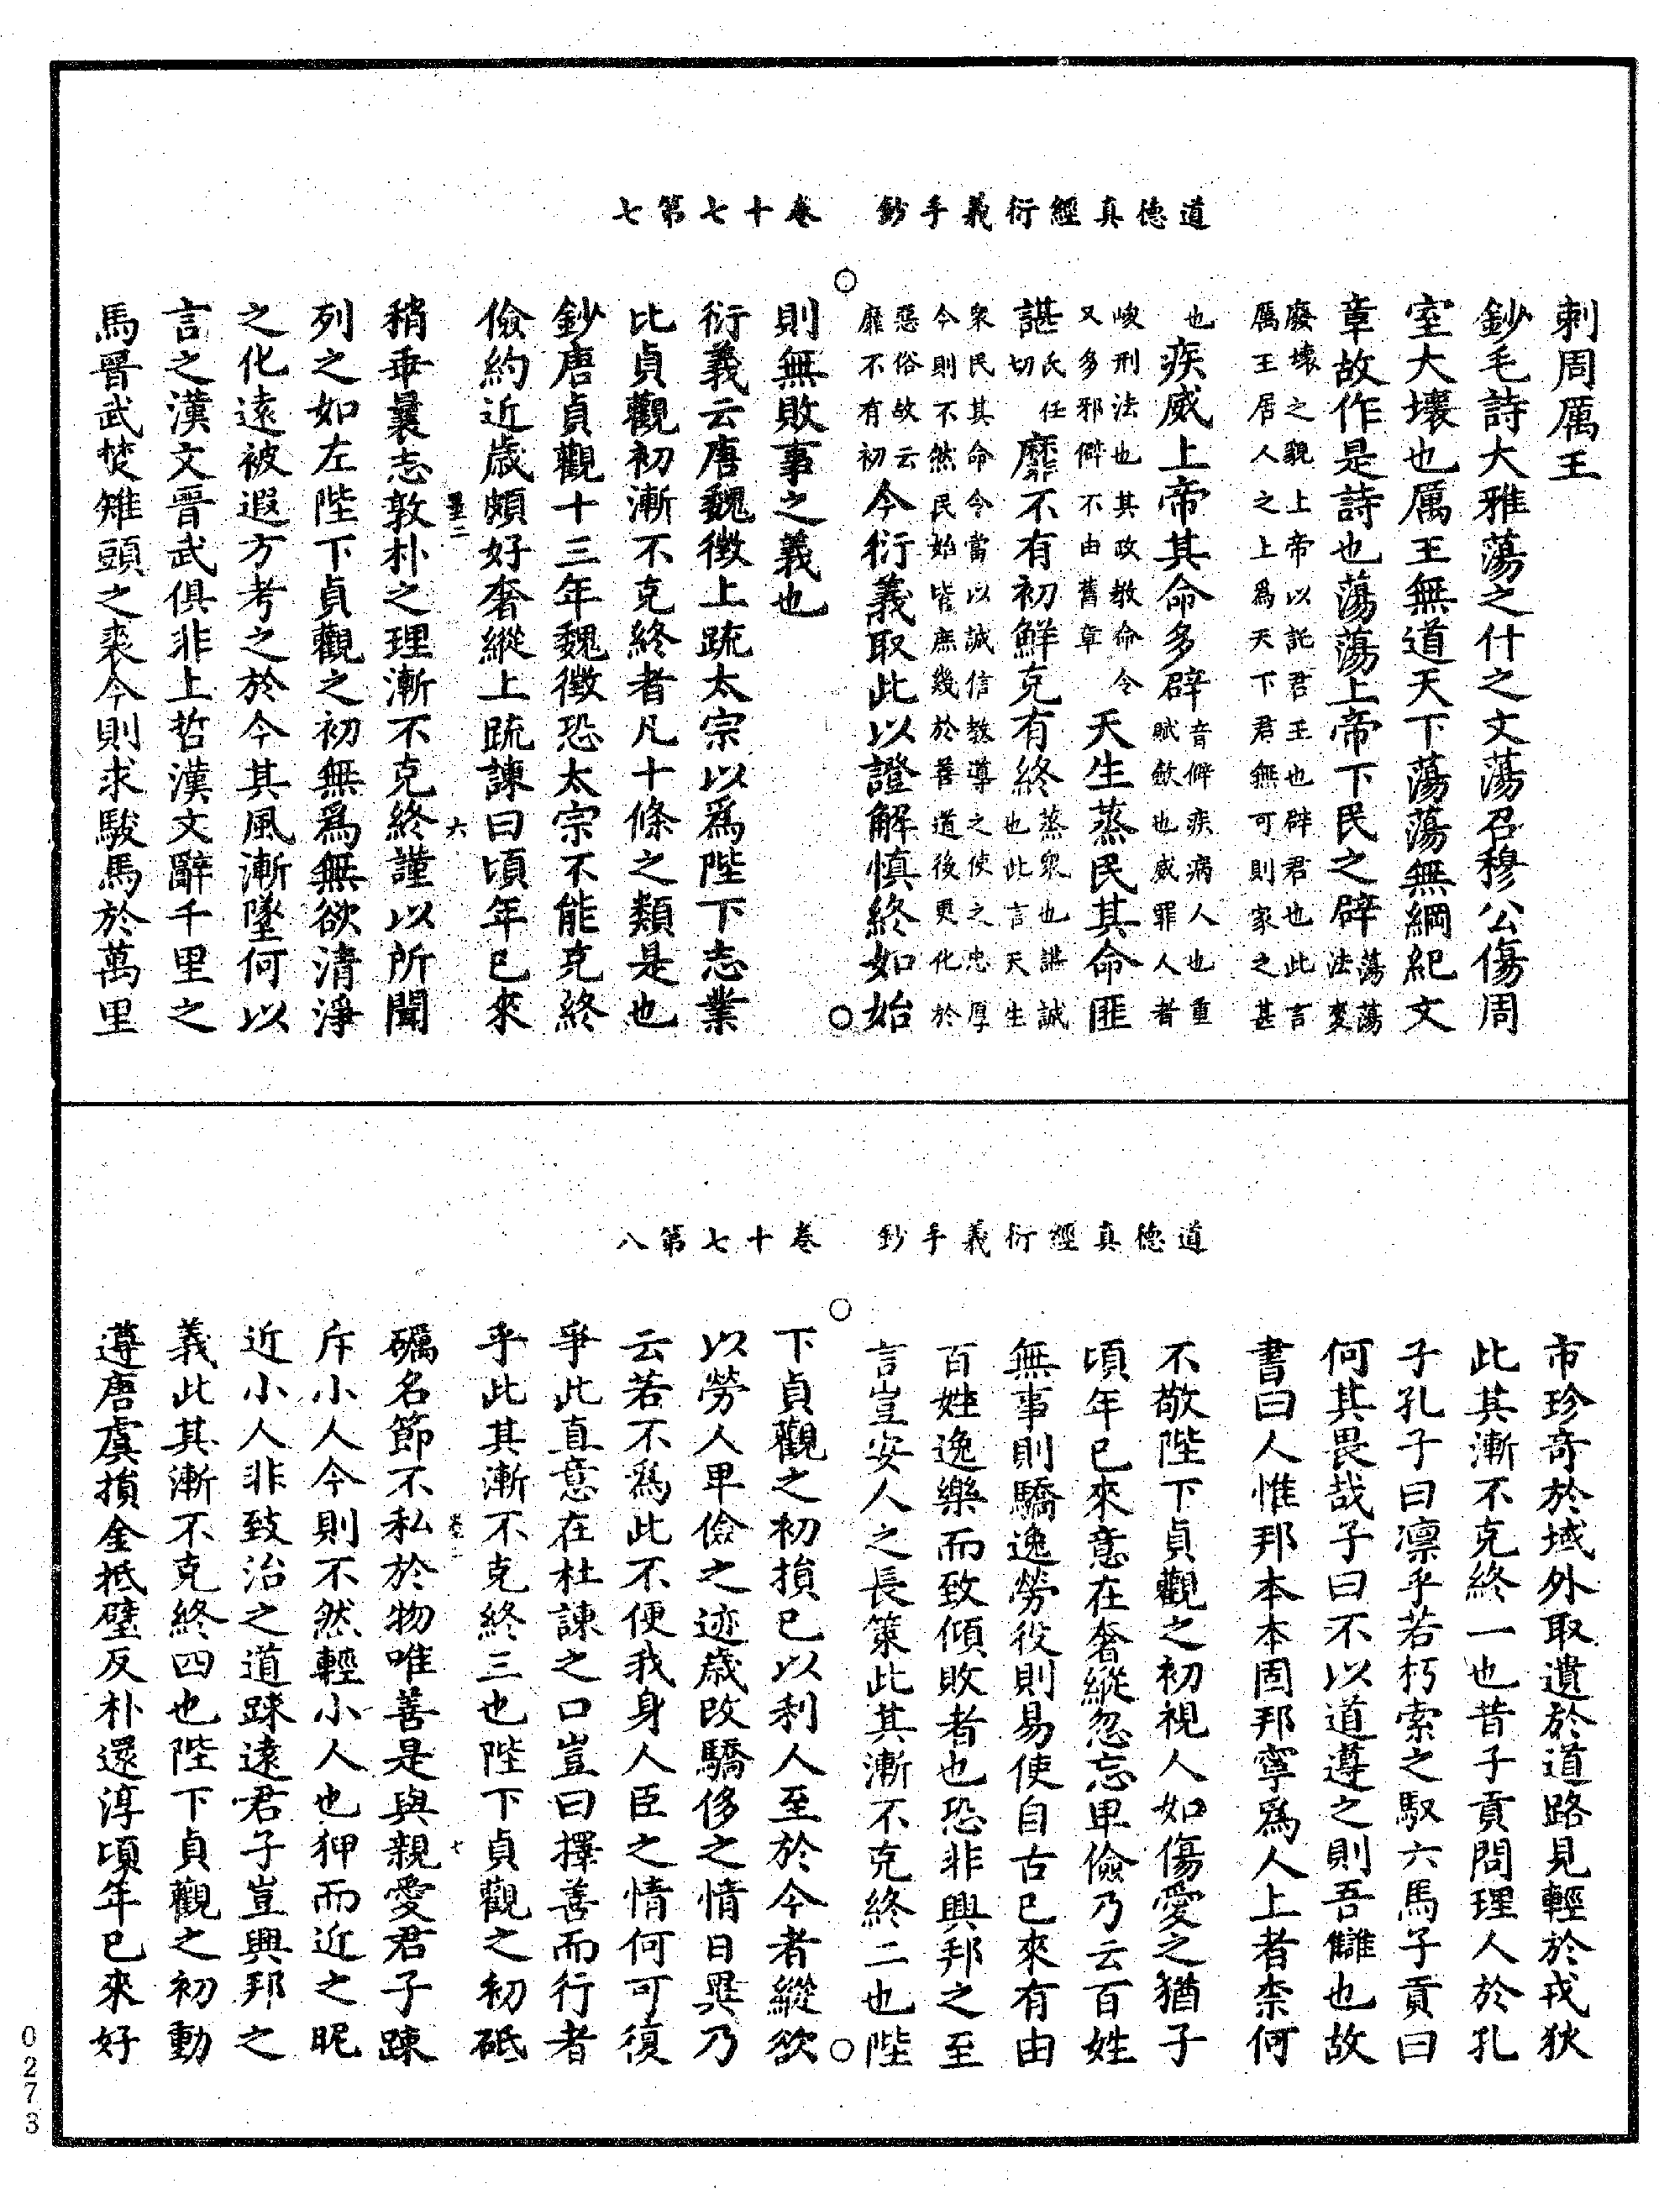 道德真經衍義手鈔　卷十七第七
刺周厲王
鈔毛詩大雅蕩之什之文蕩召穆公傷周
室大壞也厲王無道天下蕩蕩無綱紀文
章故作是詩也蕩蕩上帝下民之辟蕩蕩法度
廢壞之貌上帝以託君王也辟君也此言
厲王居人之上爲天下君無可則家之甚
也疾威上帝其命多辟音僻疾病人也重賦斂也威罪人者
峻刑法也其政教命令
又多邪僻不由舊章天生蒸民其命匪
諶氏任切靡不有初鮮克有終蒸衆也諶誠也此言天生
衆民其命令當以誠信教導之使之忠厚
今則不然民始皆庶幾於善道後更化於
惡俗故云
靡不有初今衍義取此以證解慎終如始
則無敗事之義也
衍義云唐魏徵上疏太宗以爲陛下志業
比貞觀初漸不克終者凡十條之類是也
鈔唐貞觀十三年魏徵恐太宗不能克終
儉約近歲頗好奢縱上疏諫曰頃年已來
六
稍乖曩志敦朴之理漸不克終謹以所聞
列之如左陛下貞觀之初無爲無欲清淨
之化遠被遐方考之於今其風漸墜何以
言之漢文晉武俱非上哲漢文辭千里之
馬晉武焚雉頭之裘今則求駿馬於萬里
道德真經衍義手鈔　卷十七第八
市珍奇於域外取遺於道路見輕於戎狄
此其漸不克終一也昔子貢問理人於孔
子孔子曰凛乎若朽索之馭六馬子貢曰
何其畏哉子曰不以道遵之則吾讎也故
書曰人惟邦本本固邦寧爲人上者柰何
不敬陛下貞觀之初視人如傷愛之猶子
頃年已來意在奢縱忽忘卑儉乃云百姓
無事則驕逸勞役則易使自古已來有由
百姓逸樂而致傾敗者也恐非興邦之至
言豈安人之長策此其漸不克終二也陛
下貞觀之初損已以利人至於今者縱欲
以勞人卑儉之迹歲改驕侈之情日異乃
云若不爲此不便我身人臣之情何可復
爭此直意在杜諫之口豈曰擇善而行者
乎此其漸不克終三也陛下貞觀之初砥
七
礪名節不私於物唯善是與親愛君子踈
斥小人今則不然輕小人也狎而近之昵
近小人非致治之道踈遠君子豈興邦之
義此其漸不克終四也陛下貞觀之初動
遵唐虞損金抵璧反朴還淳頃年已來好
0273